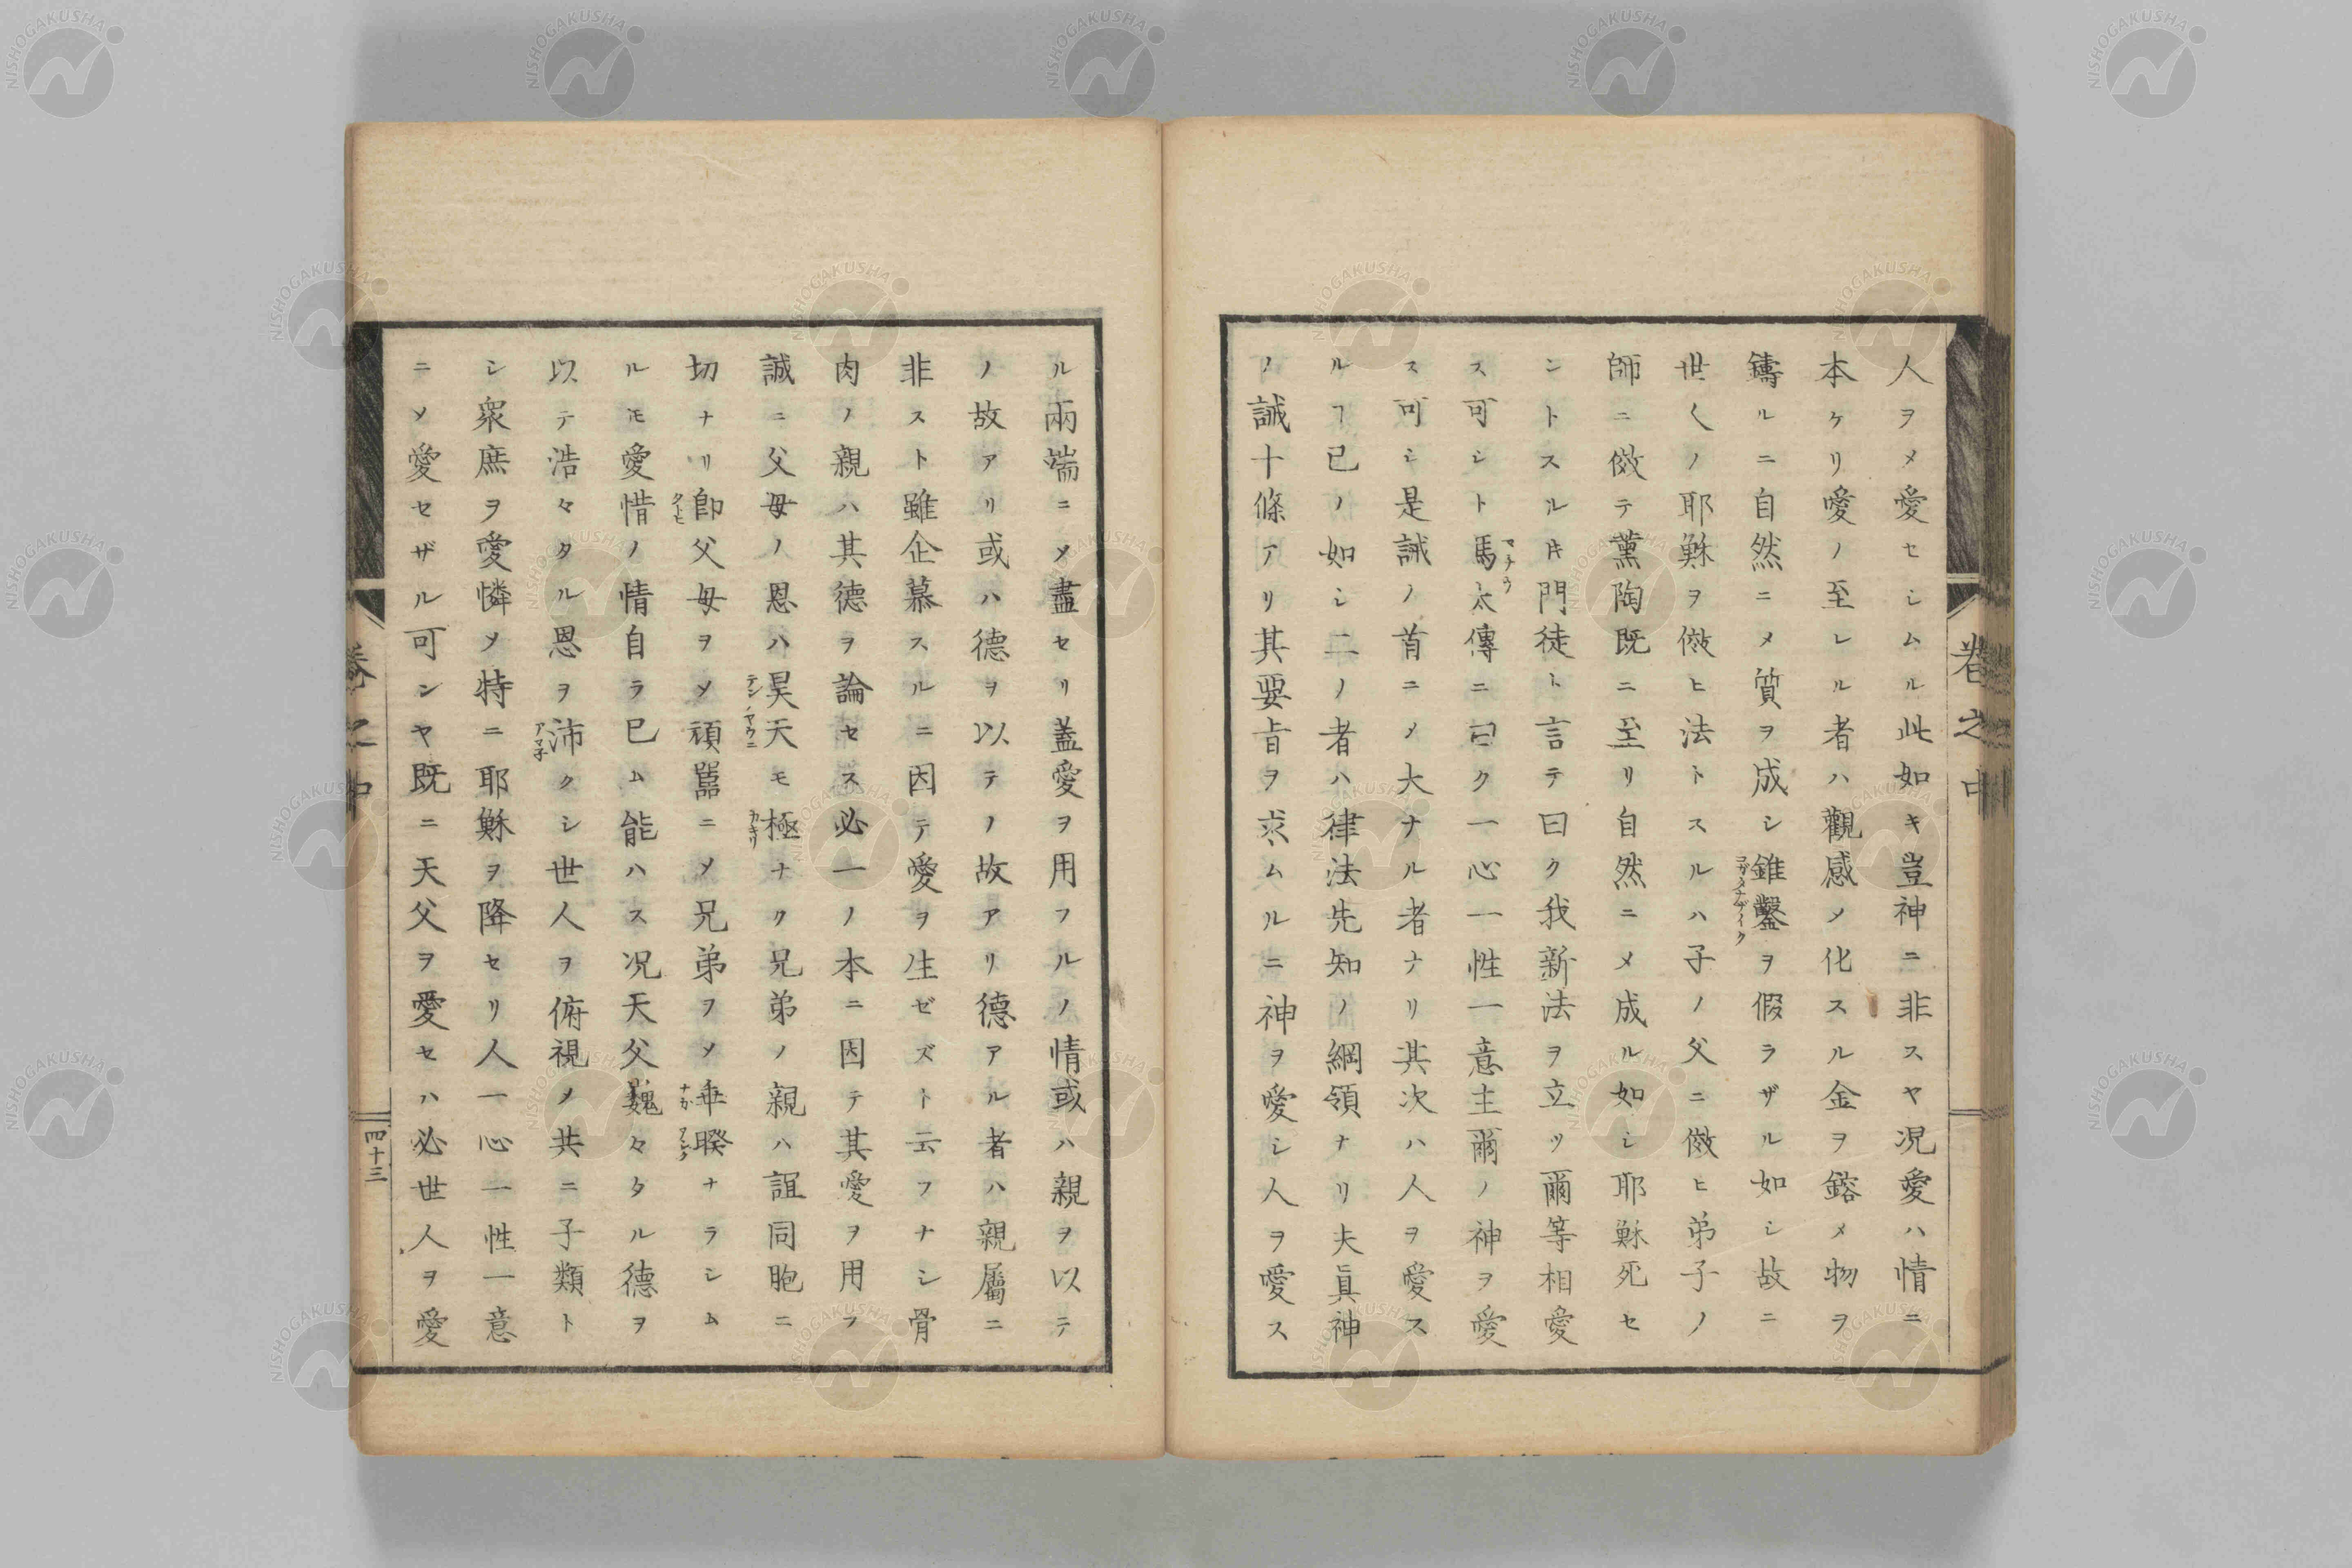 人ヲメ愛セシムル此如キ豈神ニ非スヤ况愛ハ情ニ
本ケリ愛ノ至レル者ハ觀感メ化スル金ヲ鎔メ物ヲ
鑄ルニ自然ニメ質ヲ成シ錐鑿ヲ假ラザル如シ故ニ
世人ノ耶穌ヲ傚ヒ法トスルハ子ノ父ニ傚ヒ弟子ノ
師ニ傚テ薫陶既ニ至リ自然ニメ成ル如シ耶穌死セ
ントスル𪜈門徒ト言テ曰ク我新法ヲ立ツ爾等相愛
ス可シト馬太傳ニ曰ク一心一性一意主爾ノ神ヲ愛
マタウ
ス可シ是誡ノ首ニメ大ナル者ナリ其次ハ人ヲ愛ス
ルヿ已ノ如シ二ノ者ハ律法先知ノ綱領ナリ夫眞神
ノ誡十條アリ其要旨ヲ求ムルニ神ヲ愛シ人ヲ愛ス
卷之中
ル兩端ニメ盡セリ蓋愛ヲ用フルノ情或ハ親ヲ以テ
ノ故アリ或ハ德ヲ以テノ故アリ德アル者ハ親屬ニ
非スト雖企慕スルニ因テ愛ヲ生ゼズト云フナシ骨
肉ノ親ハ其德ヲ論セス必一ノ本ニ因テ其愛ヲ用フ
誠ニ父母ノ恩ハ昊天モ極ナク兄弟ノ親ハ誼同胞ニ
テンノヤウニ
カキリ
切ナリ即父母ヲメ頑嚚ニメ兄弟ヲメ乖睽ナラシム
タトヒ
ルモ愛惜ノ情自ラ已ム能ハス况天父巍々タル德ヲ
以テ浩々タル恩ヲ沛クシ世人ヲ俯視メ共ニ子類ト
アマネ
シ衆庶ヲ愛憐メ特ニ耶穌ヲ降セリ人一心一性一意
ニメ愛セザル可ンヤ既ニ天父ヲ愛セハ必世人ヲ愛
卷之中
四十三